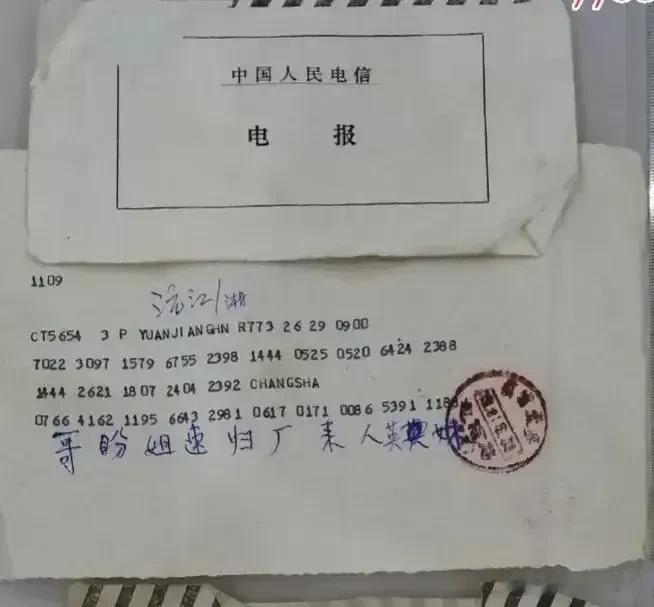 中国人民电信
电 报
1109
沅江湘
CT5654 3 P YUANJIANGHN R773 26 29 0900
7022 3097 1579 6755 2398 1444 0525 0520 6424 2388
1444 2621 1807 2404 2392 CHANGSHA
0766 4162 1195 6643 2981 0617 0171 0086 5391 1188
哥 盼 姐 速 归 厂 来 人 英 妹